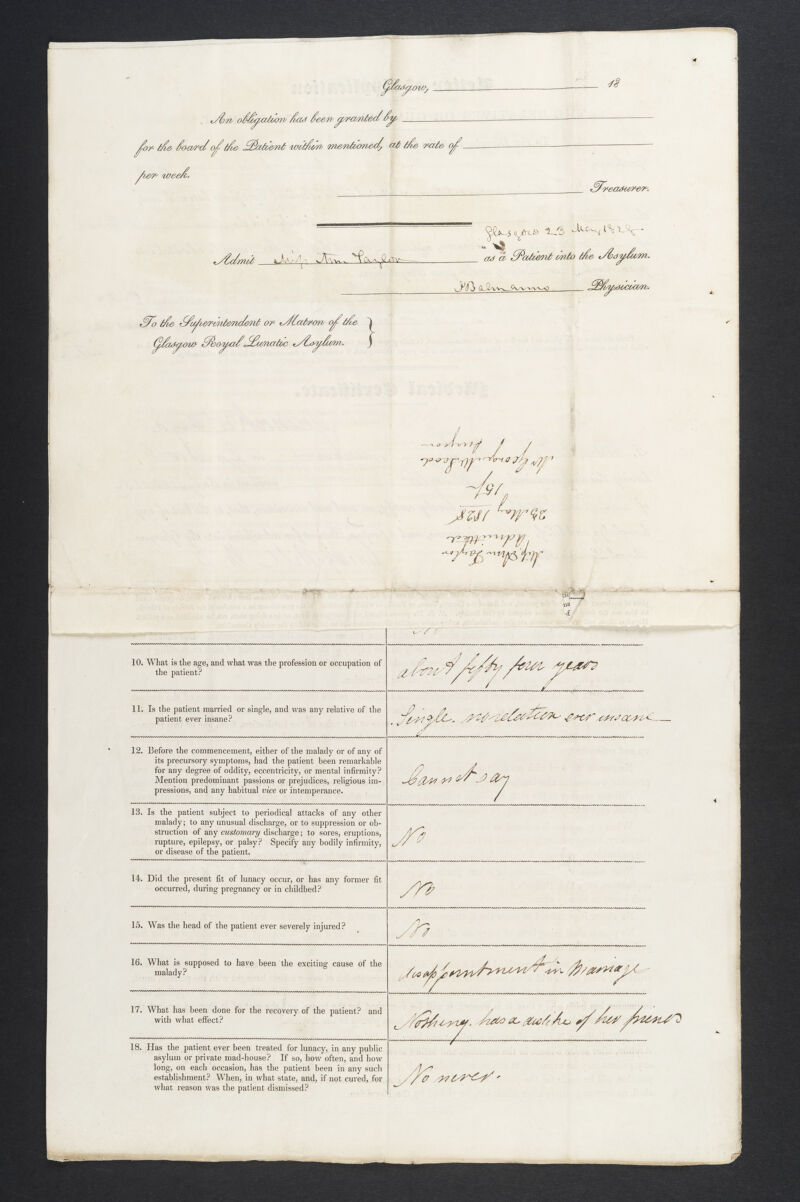 Glasgow, 18
An obligation has been granted by
for the board of the Patient within mentioned, at the rate of
per week.
Treasurer.
Glasgow 23 May 1828.
Admit Miss Ann Taylor as a Patient into the Asylum.
Balmanno Physician.
To the Superintendent or Matron of the
Glasgow Royal Lunatic Asylum.
Miss Ann Taylor
Admitted
23 May 1828
15/-
Mr George McLeod
Surgeon
No
10. What is the age, and what was the profession or occupation of
the patient?
about fifty four years
11. Is the patient married or single, and was any relative of the
patient ever insane?
Single. no relation ever insane
12. Before the commencement, either of the malady or of any of
its precursory symptoms, had the patient been remarkable
for any degree of oddity, eccentricity, or mental infirmity?
Mention predominant passions or prejudices, religious im-
pressions, and any habitual vice or intemperance.
Cannot say
13. Is the patient subject to periodical attacks of any other
malady; to any unusual discharge, or to suppression or ob-
struction of any customary discharge; to sores, eruptions,
rupture, epilepsy, or palsy? Specify any bodily infirmity,
or disease of the patient.
No
14. Did the present fit of lunacy occur, or has any former fit
occurred, during pregnancy or in childbed?
No
15. Was the head of the patient ever severely injured?
No
16. What is supposed to have been the exciting cause of the
malady?
disappointment in Marriage
17. What has been done for the recovery of the patient? and
with what effect?
Nothing. has a dislike of her friends
18. Has the patient ever been treated for lunacy, in any public
asylum or private mad-house? If so, how often, and how
long, on each occasion, has the patient been in any such
establishment? When, in what state, and, if not cured, for
what reason was the patient dismissed?
No never.